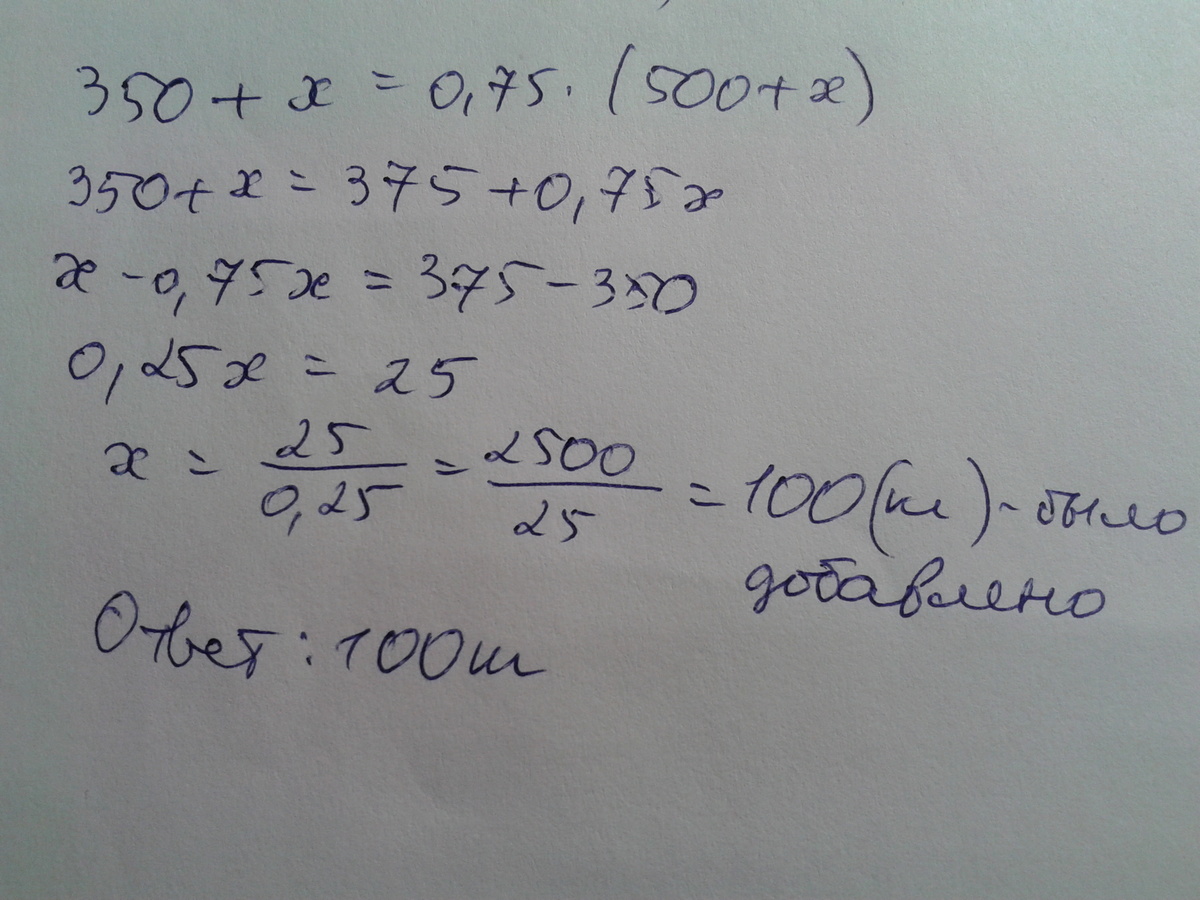 350 + x = 0,75 · (500 + x)
350 + x = 375 + 0,75x
x - 0,75x = 375 - 350
0,25x = 25
x = 25/0,25 = 2500/25 = 100 (кг) - было
добавлено
Ответ: 100кг